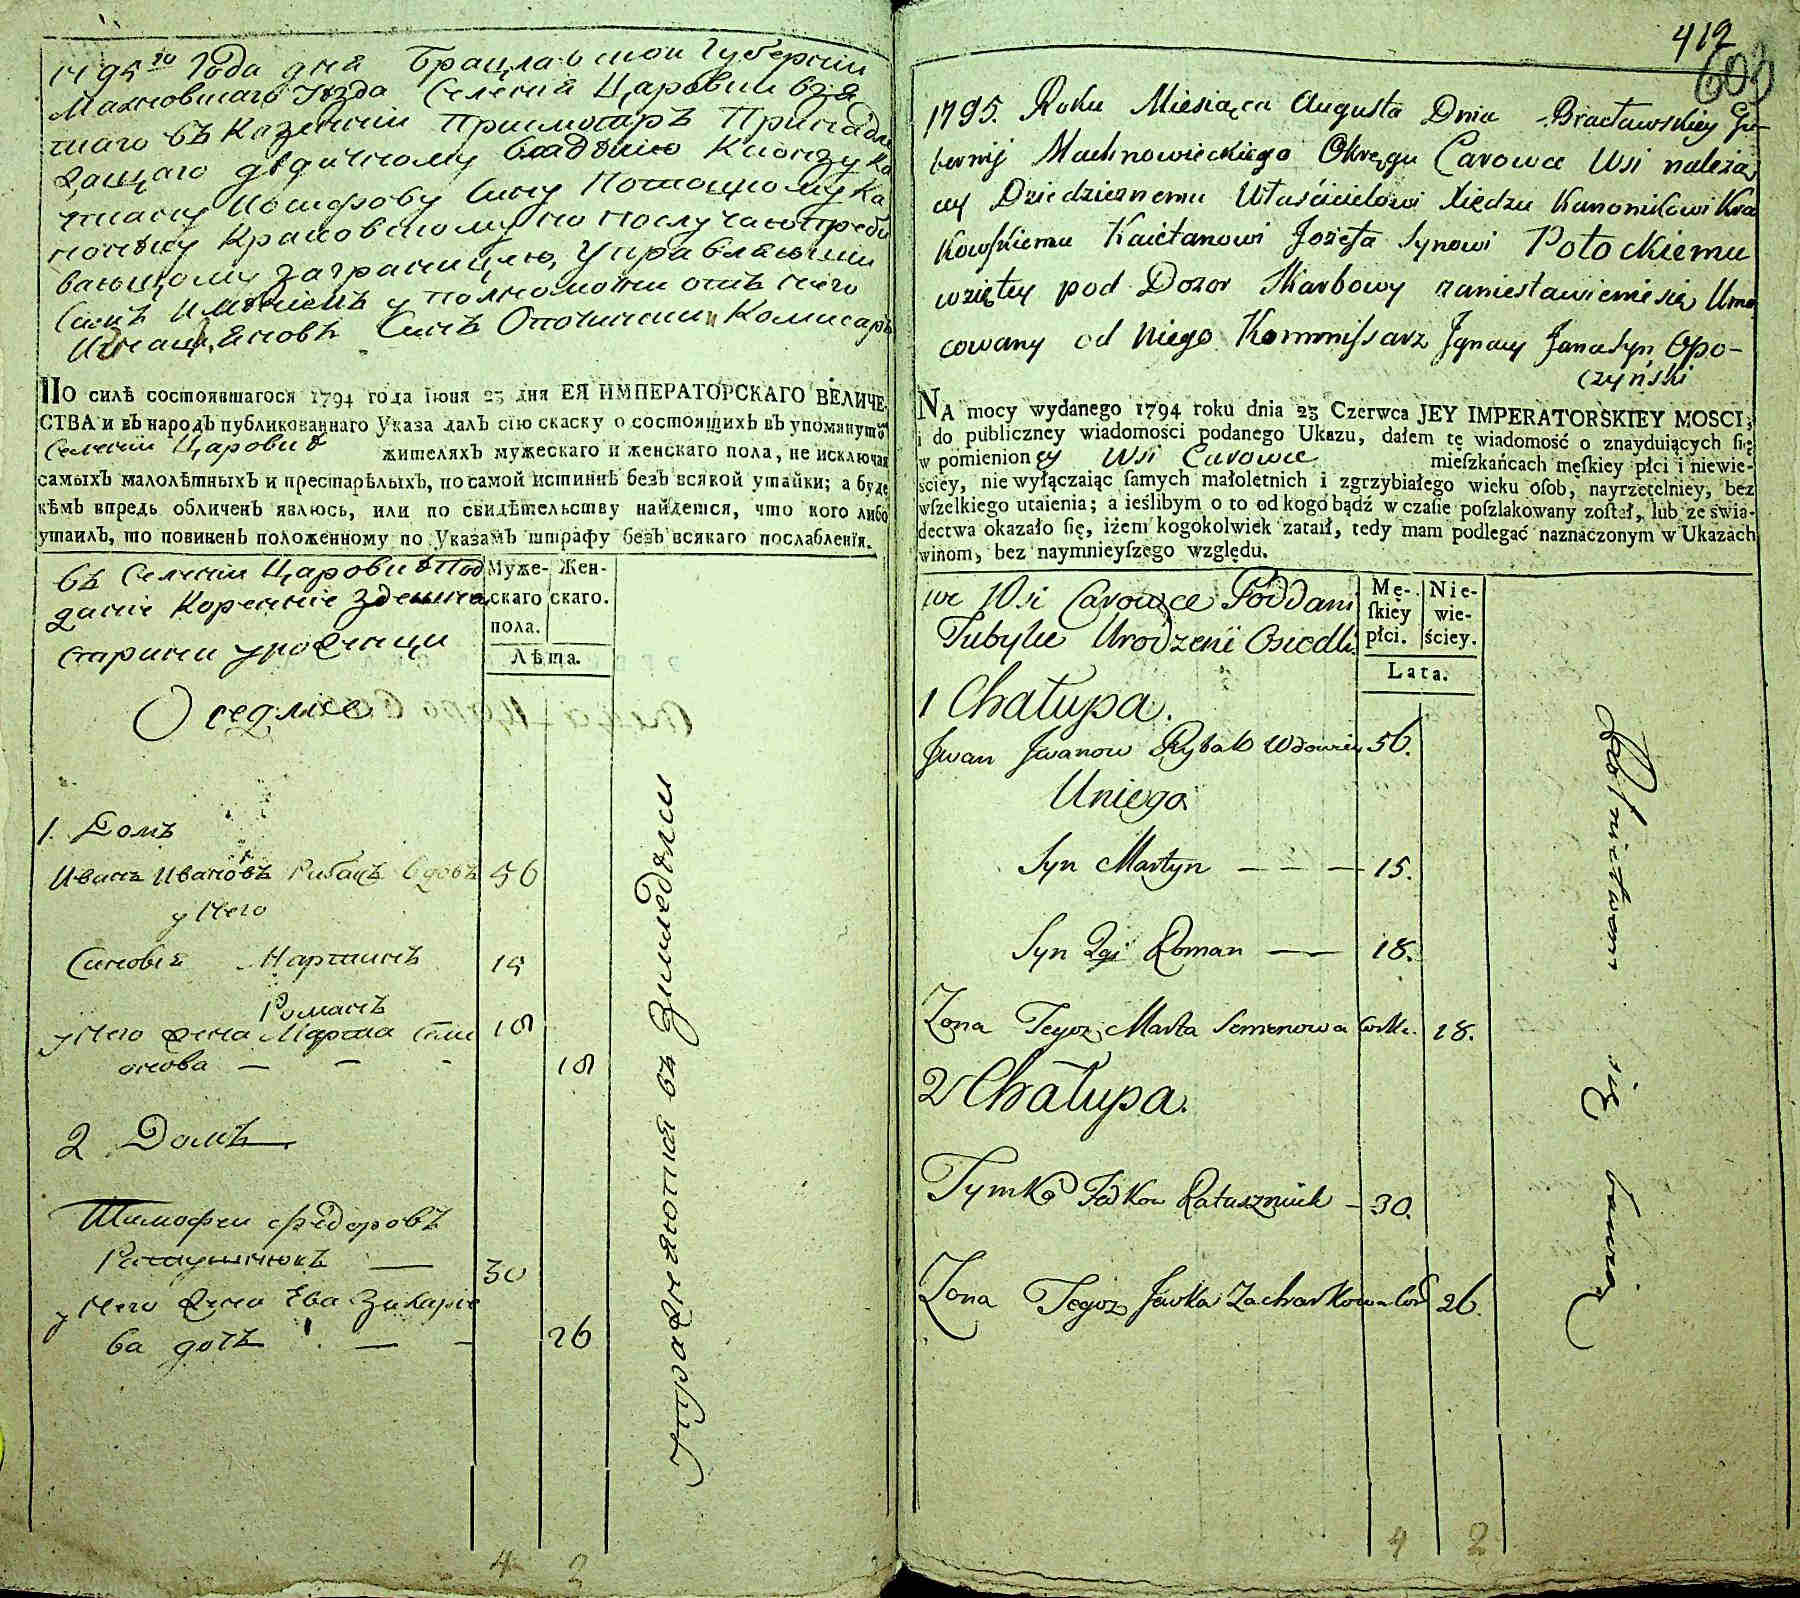 1795го Года дня Брацлавской Губернии
Махновскаго Уезда Селения Царовки взя
таго въ Казенний Присмотръ Принадле
жащаго дедичному владению Ксионзу Ка
етану Иосифову Сину Потоцкому Ка
нонику Краковскому но послучаю преби
вающому заграницею, Управляющий
Симъ Имениемъ уполномочни отъ него
Игнаци Яновъ Синъ Опочински Комисаръ
ПО силѣ состоявшагося 1794 года іюня 23 дня ЕЯ ИМПЕРАТОРСКАГО ВЕЛИЧЕ-
СТВА и въ народъ публикованнаго Указа далъ сію скаску о состоящихъ въ упомянутой
Селении Царовки жителяхъ мужескаго и женскаго пола, не исключая
самыхъ малолѣтныхъ и престарѣлыхъ, по самой истиннѣ безъ всякой утайки; а буде
кѣмъ впредь обличенъ явлюсь, или по свидѣтельству найдется, что кого либо
утаилъ, то повиненъ положенному по Указамъ штрафу безъ всякаго послабленія.
въ Селении Царовки Под
дание Коренние Здешна
старини уроженци
Оседлие
Муже-
скаго
пола.
Жен-
скаго.
Лѣта.
1. Домъ
Иванъ Ивановъ Рибакъ вдовъ 56
у Него
Синовья Мартинъ 15
Романъ 18
у Него жена Марта Семе
онова — — - 18
2 Домъ
Тимофеи Федоровъ
Ратушнюкъ — 30
у Него жена Ева Захарко
ва дочь — - 26
упражняются въ Земледелии
4 2
412
609
1795. Roku Miesiąca Augusta Dnia Bracławskiey Gu-
bernij Machnowieckiego Okręgu Carowce Wsi należą
cey Dziedzicznemu Właścicielowi Xiędzu Kanonikowi Kra
kowskiemu Kaietanowi Jozefa Synowi Potockiemu
wziętey pod Dozor Skarbowy zaniestawieniesię Umo
cowany od Niego Kommissarz Jgnacy Jana Syn Opo-
czyński
NA mocy wydanego 1794 roku dnia 23 Czerwca JEY IMPERATORSKIEY MOSCI;
i do publiczney wiadomości podanego Ukazu, dałem tę wiadomość o znayduiących ſię
w pomienioney Wsi Carowce mieſzkańcach męſkiey płci i niewie-
ściey, nie wyłączaiąc ſamych małoletnich i zgrzybiałego wieku oſob, nayrzetelniey, bez
wſzelkiego utaienia; a ieślibym o to od kogo bądź w czaſie poſzlakowany zoſtał, lub ze świa-
dectwa okazało ſię, iżem kogokolwiek zataił, tedy mam podlegać naznaczonym w Ukazach
winom, bez naymnieyſzego względu.
we Wsi Carowce Poddani
Tubylce Urodzeni Osiedli
Mę-
ſkiey
płci.
Nie-
wie-
ściey.
Lata.
1 Chałupa.
Jwan Jwanow Rybak Wdowiec 56.
Uniego
Syn Martyn — — — 15.
Syn 2gi Roman — — 18.
Zona Tegoz Marta Semenowa Corka. 18.
2 Chałupa.
Tymko Fedkow Ratuszniuk — 30.
Zona Tegoz Jewka Zacharkowa Cor 26.
Rolnictwem się bawią
4 2